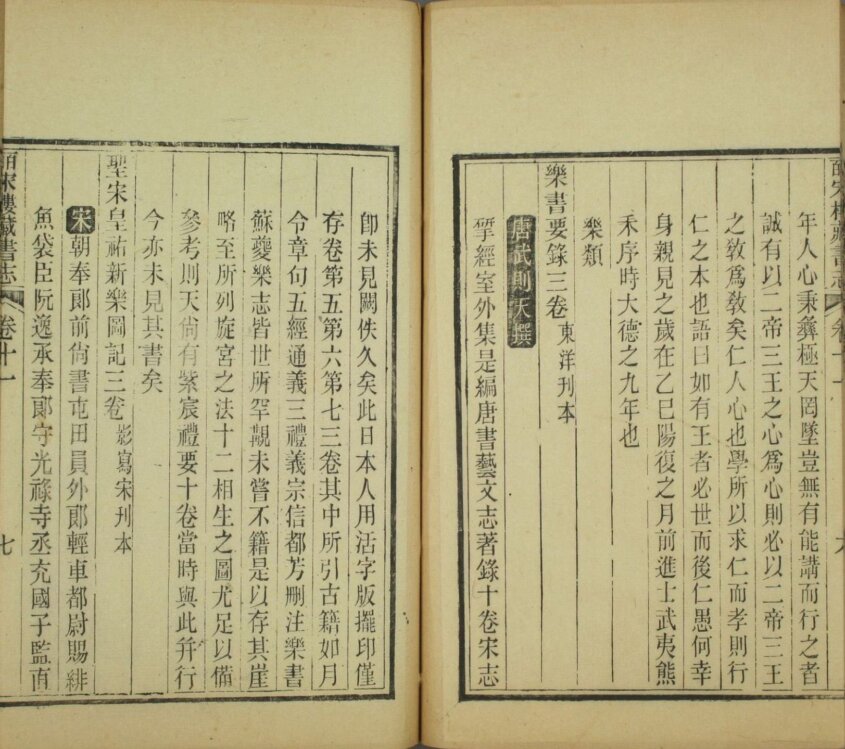 年人心秉彝極天罔墜豈無有能講而行之者
誠有以二帝三王之心爲心則必以二帝三王
之敎爲敎矣仁人心也學所以求仁而孝則行
仁之本也語曰如有王者必世而後仁愚何幸
身親見之歲在乙巳陽復之月前進士武夷熊
禾序時大德之九年也
樂類
樂書要錄三卷 東洋刊本
唐武則天撰
揅經室外集是編唐書藝文志著錄十卷宋志
卽未見闕佚久矣此日本人用活字版擺印僅
存卷第五第六第七三卷其中所引古籍如月
令章句五經通義三禮義宗信都芳刪注樂書
蘇夔樂志皆世所罕覯未嘗不籍是以存其崖
略至所列旋宮之法十二相生之圖尤足以備
參考則天尙有紫宸禮要十卷當時與此幷行
今亦未見其書矣
聖宋皇祐新樂圖記三卷 影寫宋刊本
宋朝奉郎前尙書屯田員外郎輕車都尉賜緋
魚袋臣阮逸承奉郎守光祿寺丞充國子監直
皕宋樓藏書志 卷十一 七